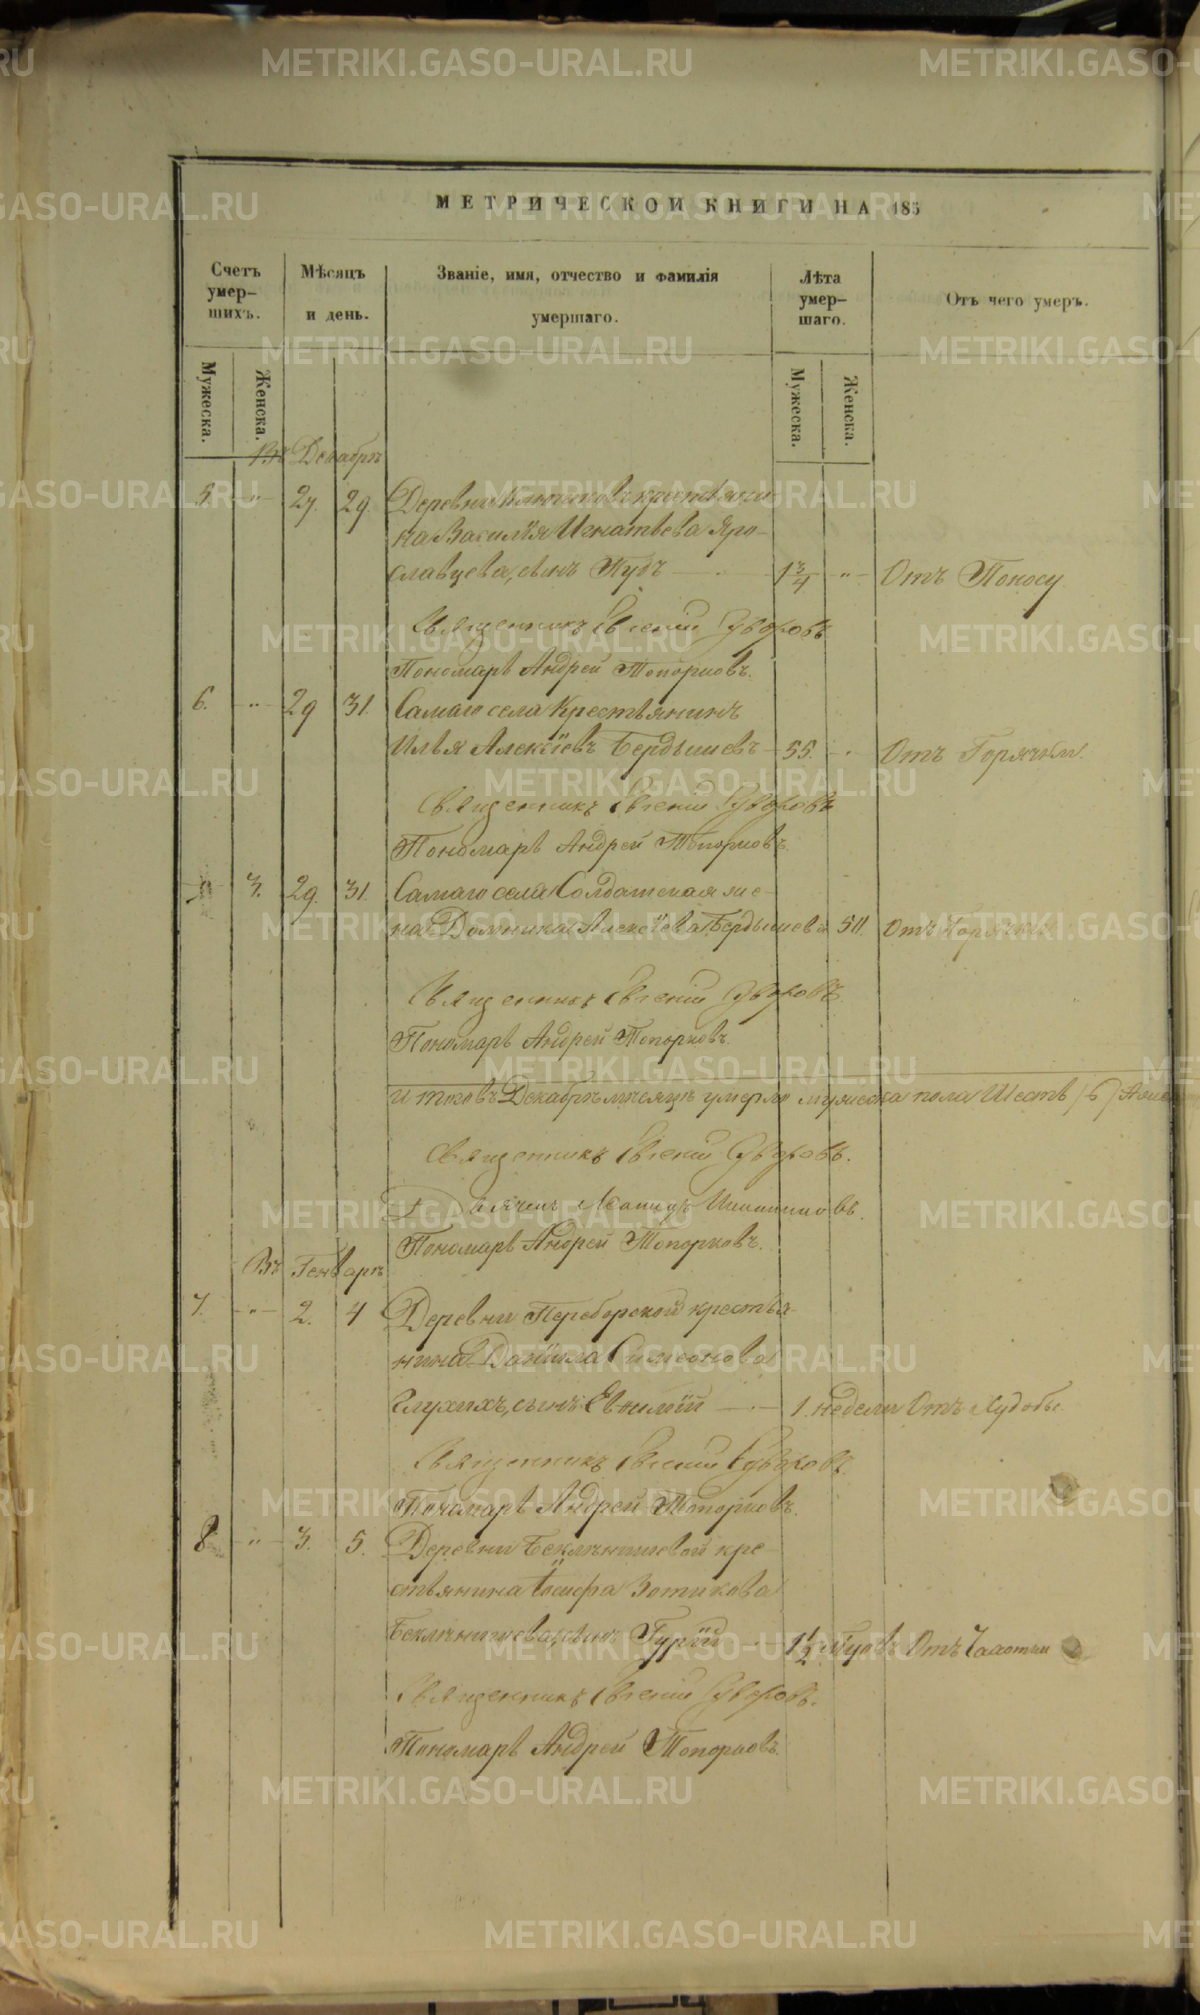 МЕТРИЧЕСКОЙ КНИГИ НА 185
Счетъ умер-шихъ.
Мѣсяцъ и день.
Званіе, имя, отчество и фамилія умершаго.
Лѣта умер-шаго.
Отъ чего умеръ.
Мужеска.
Женска.
Мужеска.
Женска.
Въ Декабрѣ
5. " 27. 29. Деревни крестьяни-
на Василія Игнатьева Яро-
славцева, сынъ 1 3/4 " Отъ Поносу.
Священникъ Евгеній Суворовъ
Пономарь Андрей Топорковъ.
6. " 29 31. Самаго села Крестьянинъ
Илья Алексѣевъ Бердышевъ 55. " Отъ Горячки.
Священникъ Евгеній Суворовъ
Пономарь Андрей Топорковъ.
" 3. 29. 31. Самаго села Солдатская же-
на Домника Алексѣева Бердышева 50. Отъ Горячки
Священникъ Евгеній Суворовъ.
Пономарь Андрей Топорковъ.
Итого въ Декабрѣ мѣсяцѣ умерло мужеска пола Шесть /6/
Священникъ Евгеній Суворовъ.
Дьячекъ
Пономарь Андрей Топорковъ.
Въ Генварѣ
7. " 2. 4 Деревни Переборской крестья-
нина Даніила Симеонова
Глухихъ, сынъ 1. недели Отъ Худобы
Священникъ Евгеній Суворовъ.
Пономарь Андрей Топорковъ.
8 " 3. 5. Деревни Беклѣнищевой кре-
стьянина Іосифа Зотикова
Беклѣнищева, сынъ Гурій 1 1/2 Отъ
Священникъ Евгеній Суворовъ.
Пономарь Андрей Топорковъ.
METRIKI.GASO-URAL.RU